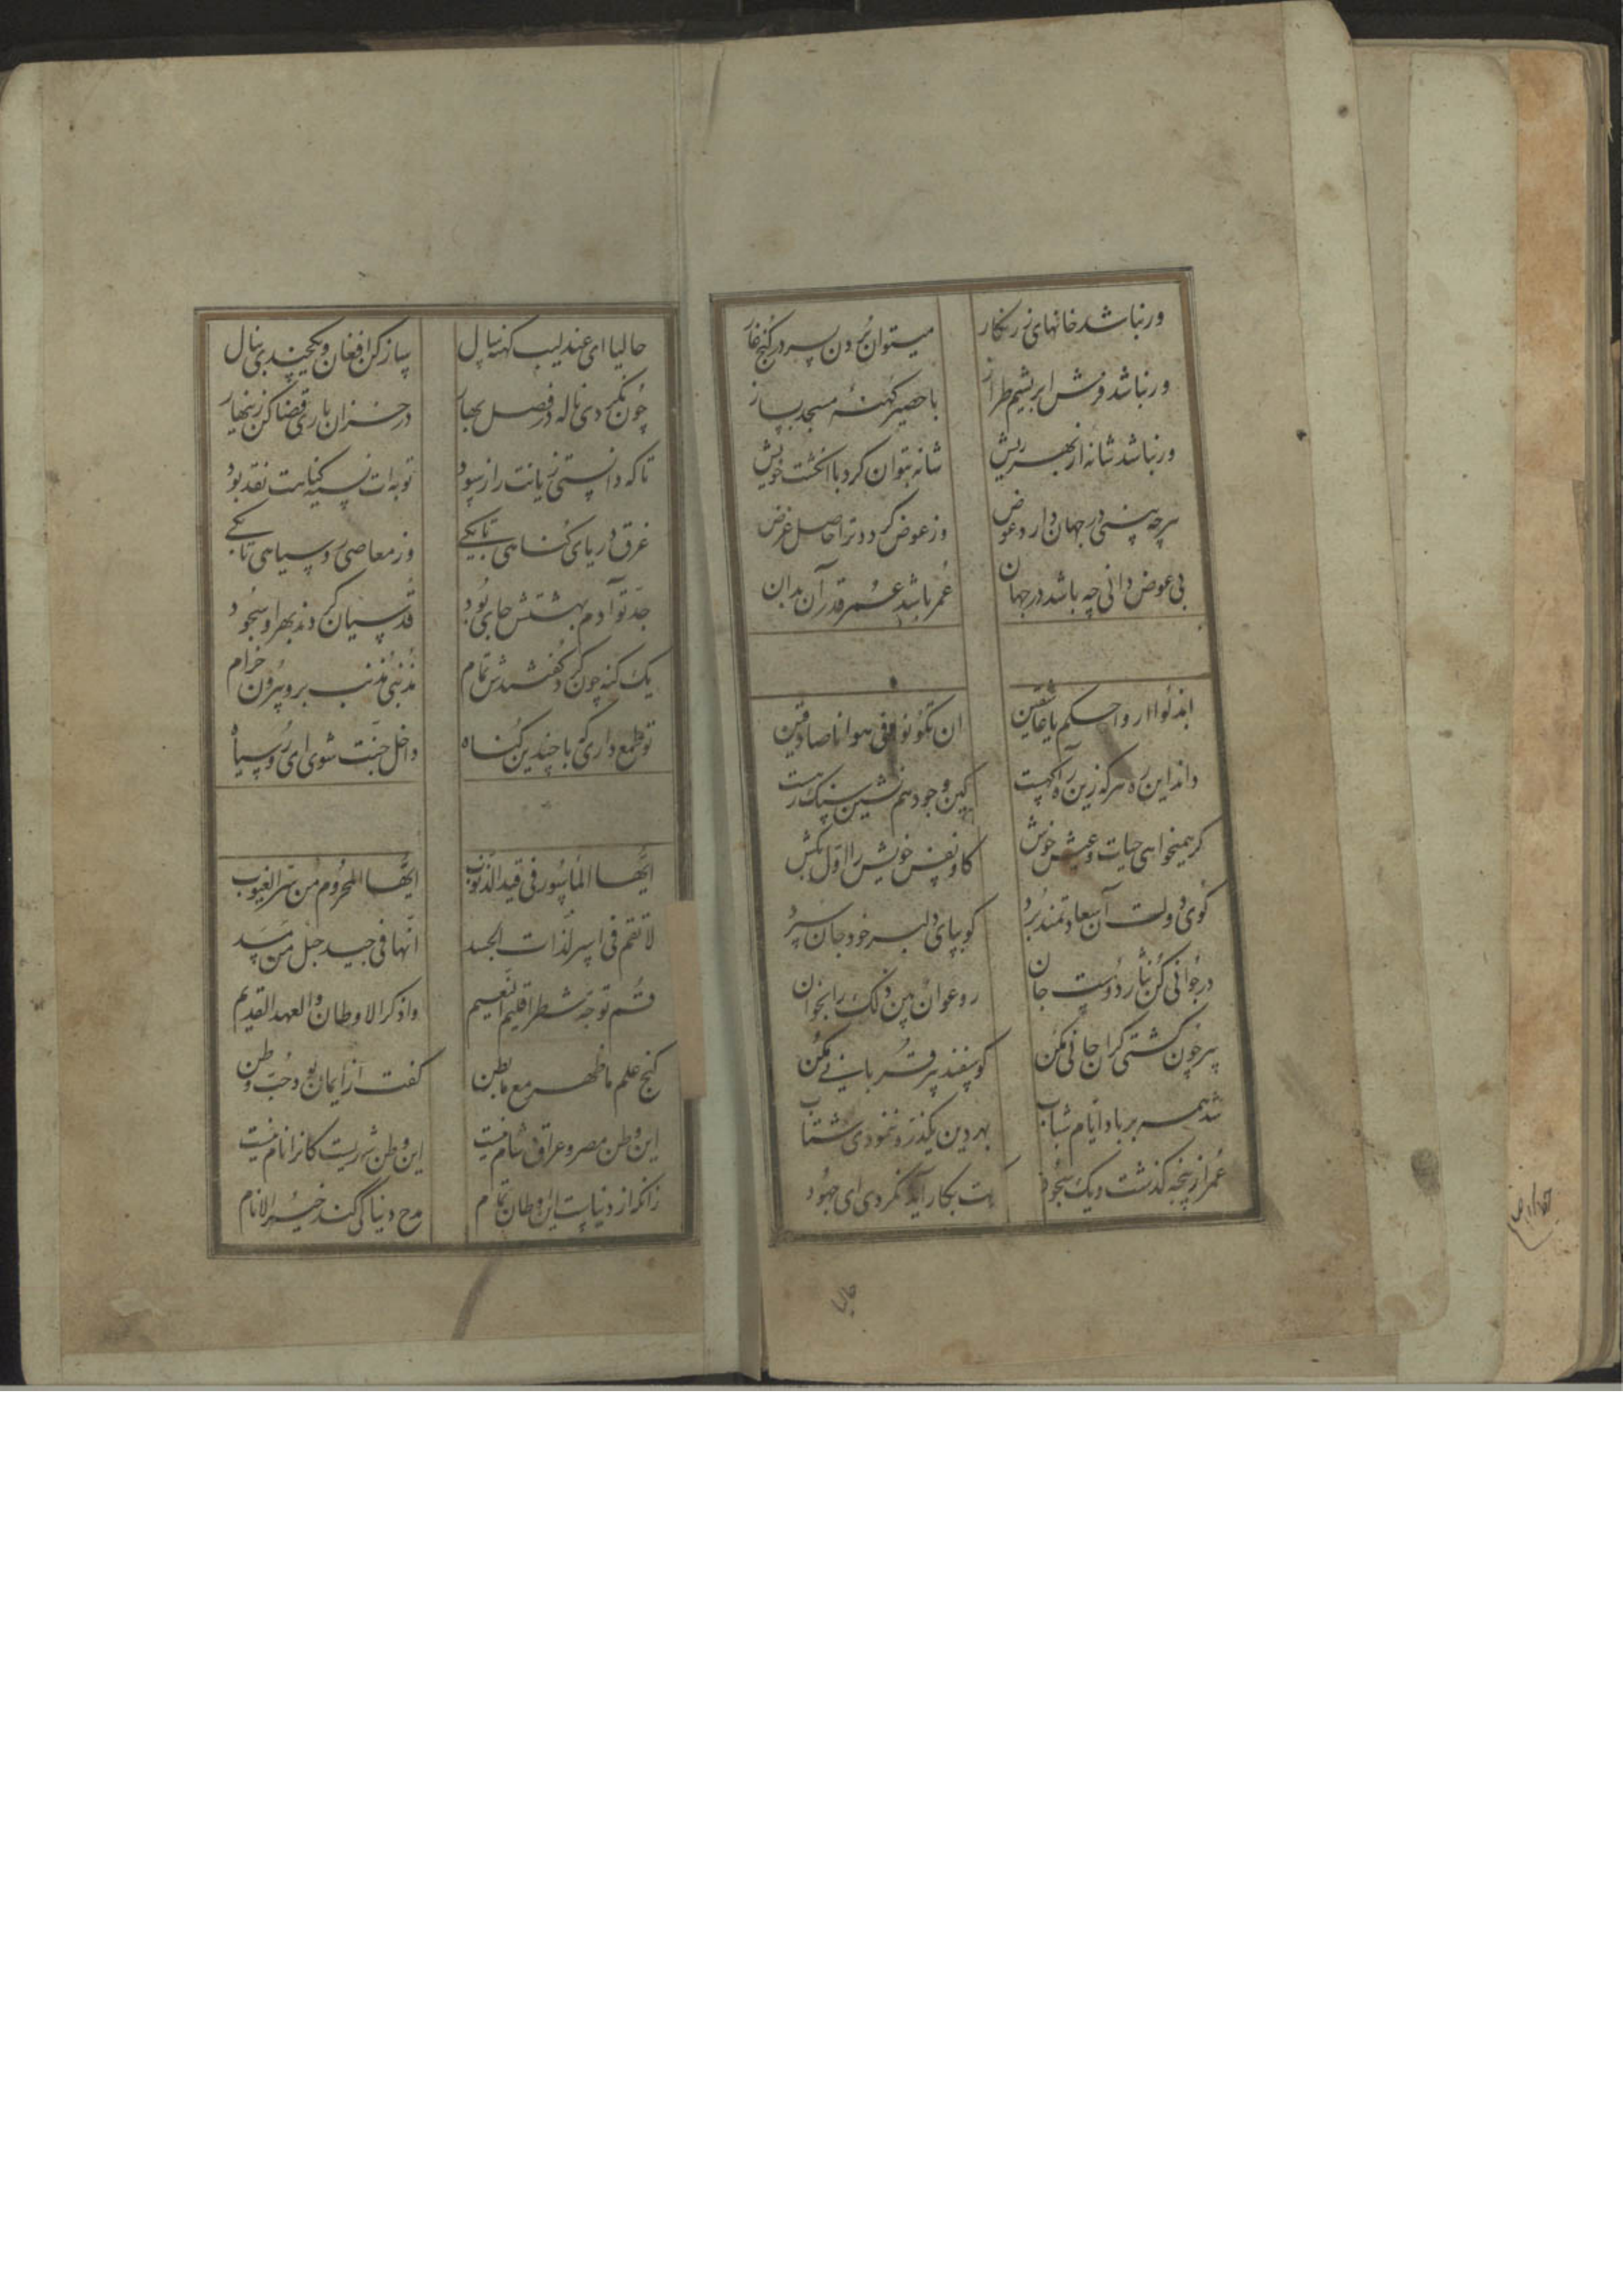 ور نباشد خانهای زرنکار میتوان بردن بسر در کنج غار
ور نباشد فرش ابریشم طراز با حصیر کهنهٔ مسجد بساز
ور نباشد شانهٔ از بهر ریش شانه بتوان کرد با انکشت خویش
هرچه بینی در جهان دارد عوض وز عوض کردد ترا حاصل غرض
بی عوض دانی چه باشد در جهان عمر باشد عمر قدر آن بدان
ابذلوا ارواحکم یا عاشقین ان تکونوا فی هوانا صادقین
داند این ره هرکه زین راه آکهست کین وجود هم نشین سنک رهست
کر همیخواهی حیات و عیش خوش کاو نفس خویش را اول بکش
کوی دولت آن سعادتمند برد کو بپای دلبر خود جان سپرد
در جوانی کن نثار دوست جان رو عوان بین ذلک را بخوان
پیر چون کشتی کران جانی مکن کوسفند پیر قربانی مکن
شد همه بر باد ایام شباب بهر دین یکذره ننمودی شتاب
عمرت از پنجه کذشت و یک سجود کت بکار آید نکردی ای جهود
حالیا
حالیا ای عندلیب کهنه سال ساز کن افغان و یکچندی بنال
چون نکردی ناله در فصل بهار در خزان باری قضا کن زینهار
تا که دانستی زیانت را ز سود توبه ات نسیه کناهت نقد بود
غرق دریای کناهی تا بکی وز معاصی روسیاهی تا بکی
جد تو آدم بهشتش جای بود قدسیان کردند بهر او سجود
یک کنه چون کرد کفتندش تمام مذنبی مذنب برو بیرون خرام
تو طمع داری که با چندین کناه داخل جنت شوی ای روسیاه
ایها المأسور فی قید الذنوب ایها المحروم من سر الغیوب
لا تقم فی اسر لذات الجسد انها فی جید حبل من مسد
قم توجه شطر اقلیم النعیم واذکر الاوطان والعهد القدیم
کنج علم ما ظهر مع ما بطن کفت از ایمان بود حب وطن
این وطن مصر و عراق و شام نیست این وطن شهریست کانرا نام نیست
زانکه از دنیاست این اوطان تمام مدح دنیا کی کند خیر الانام